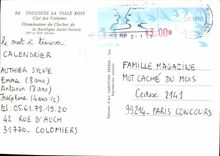 66. TOULOUSE LA VILLE ROSE
Cité du Violette
Illumination du Clocher de
la Basilique Saint-Sernin
le mot à trouver :
CALENDRIER
AUTHIER SYLVIE
Emma (8 ans)
Antonin (7 ans)
Joséphine (4 ans 1/2)
tel: 05.61.78.19.20
42 RUE D'AUCH
31770. COLOMIERS
3.00
FAMILLE MAGAZINE
MOT CACHÉ DU MOIS
Cedex 2141
99214 - PARIS CONCOURS